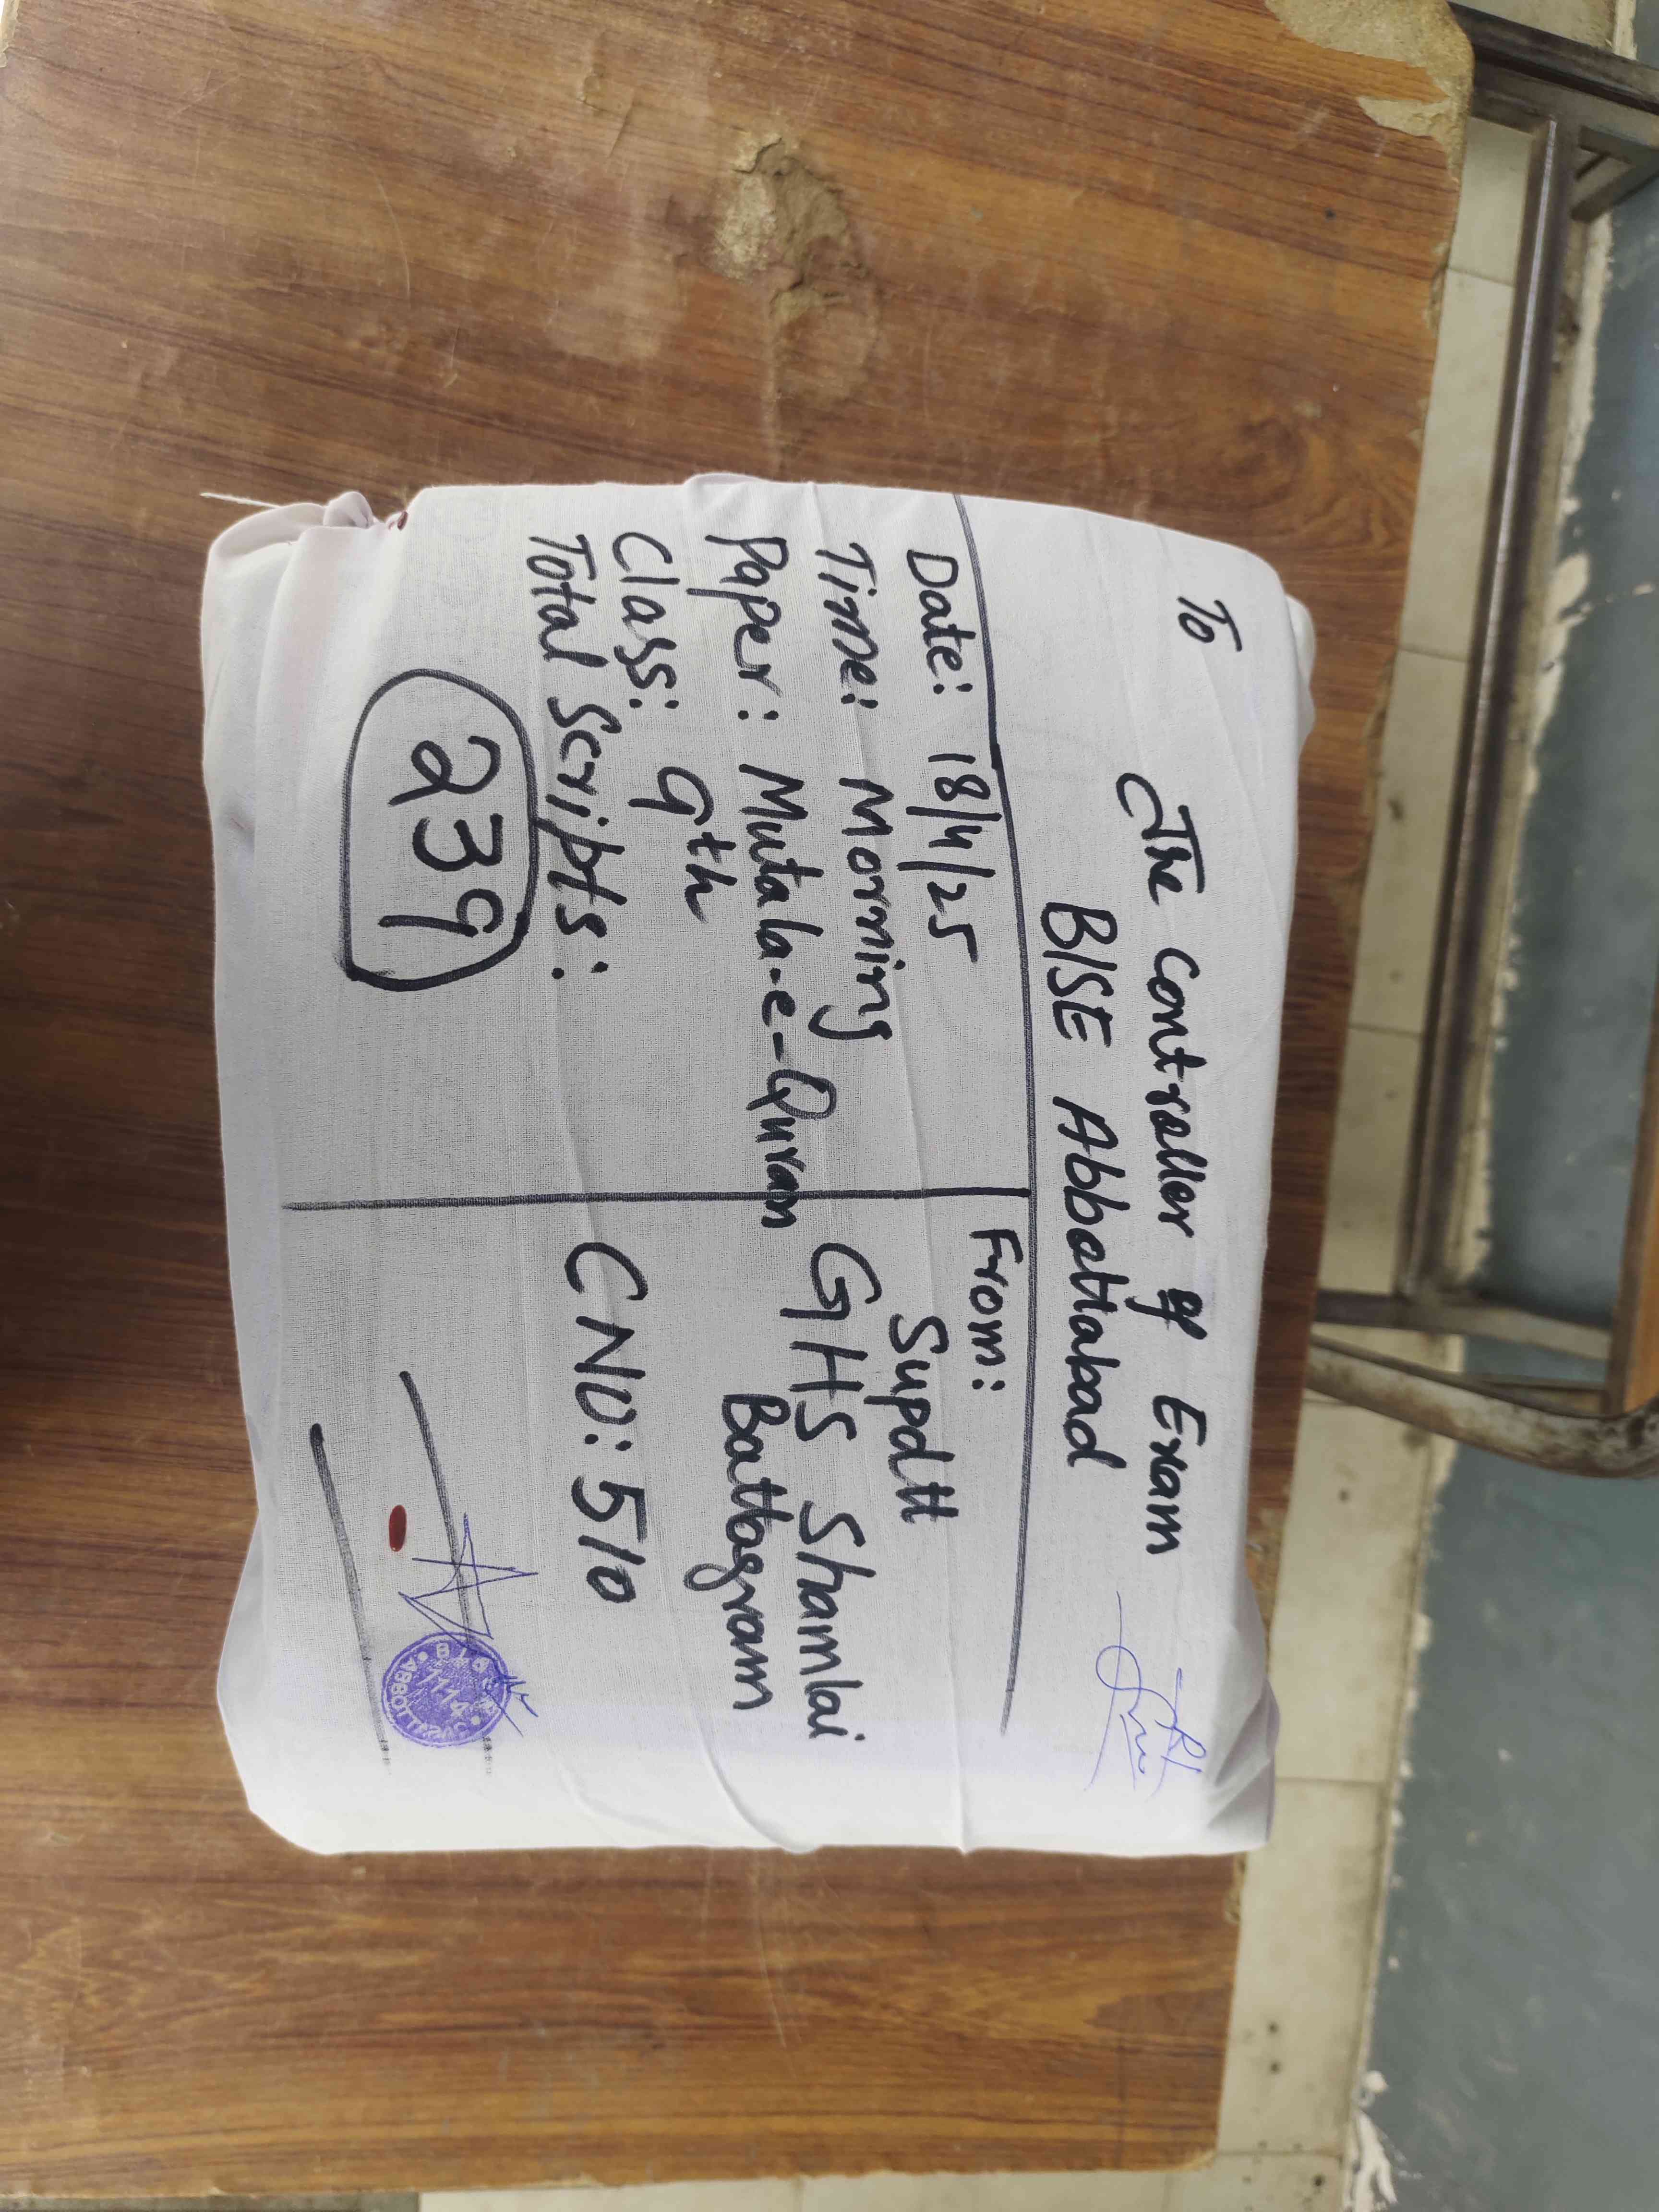 To
The Controller of Exam
BISE Abbottabad
Date: 18/4/25
Time: Morning
Paper: Mutala-e-Quran
Class: 9th
Total Scripts:
239
From:
Supdtt
GHS Shamlai
Battagram
CNO: 510